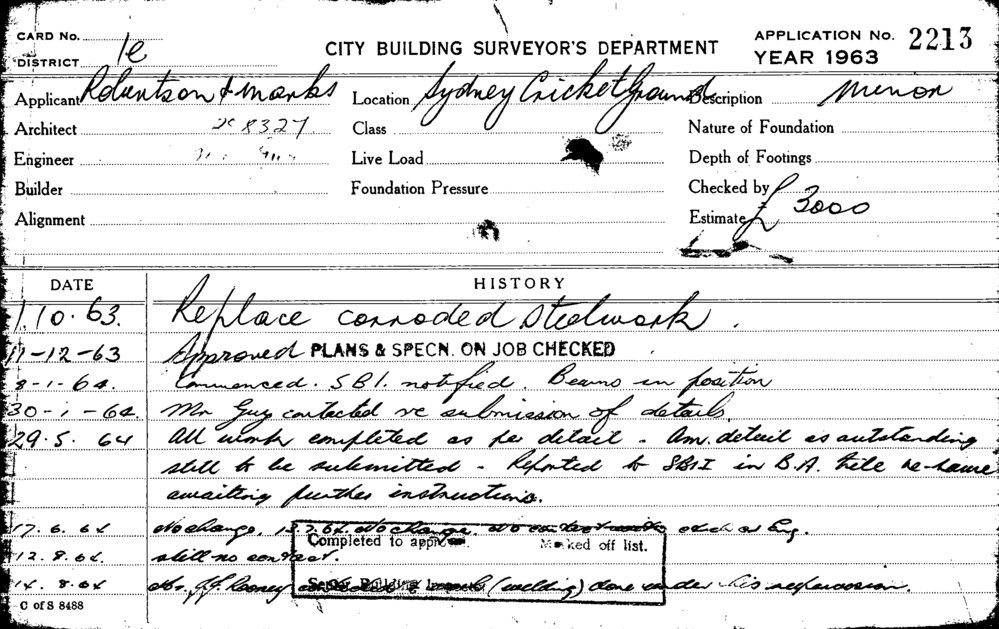 CARD No.
DISTRICT 1e
CITY BUILDING SURVEYOR'S DEPARTMENT
APPLICATION No. 2213
YEAR 1963
Applicant Robertson & Marks
Location Sydney Cricket Ground
Description Minor
Architect
Class
Nature of Foundation
Engineer
Live Load
Depth of Footings
Builder
Foundation Pressure
Checked by
Alignment
Estimate £ 3000
DATE HISTORY
1.10.63. Replace corroded steelwork.
11-12-63 Approved PLANS & SPECN. ON JOB CHECKED
8-1-64. Commenced. SBI. notified. Beams in position
30-1-64. Mr Guy contacted re submission of details
29.5.64 All work completed as per detail - Am. detail is outstanding
still to be submitted - Reported to SBI in B.A. file re-same
awaiting further instructions.
17.6.64 No change. No change.
Completed to Marked off list.
12.8.64. still no contact.
14.8.64 (welding) done under his supervision.
C of S 8488